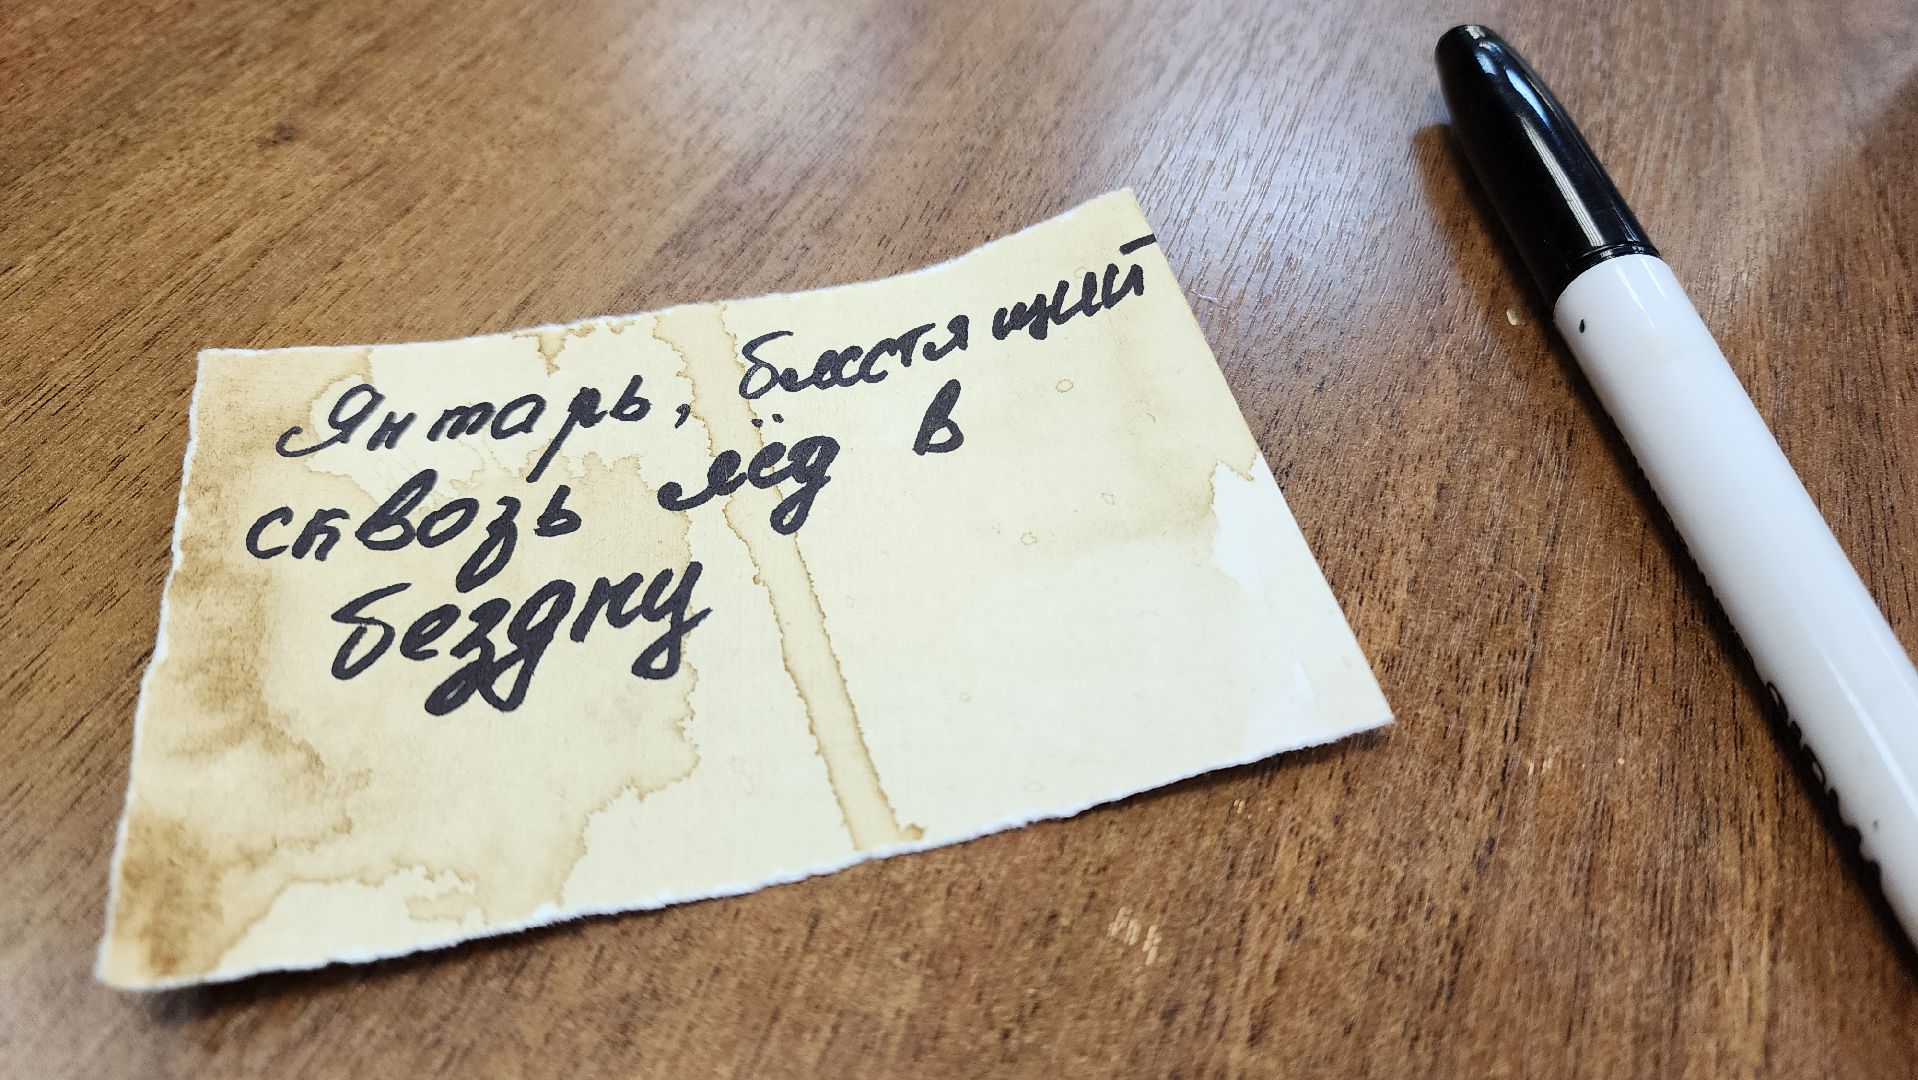 Январь, блестящий
сквозь лёд в
бездну